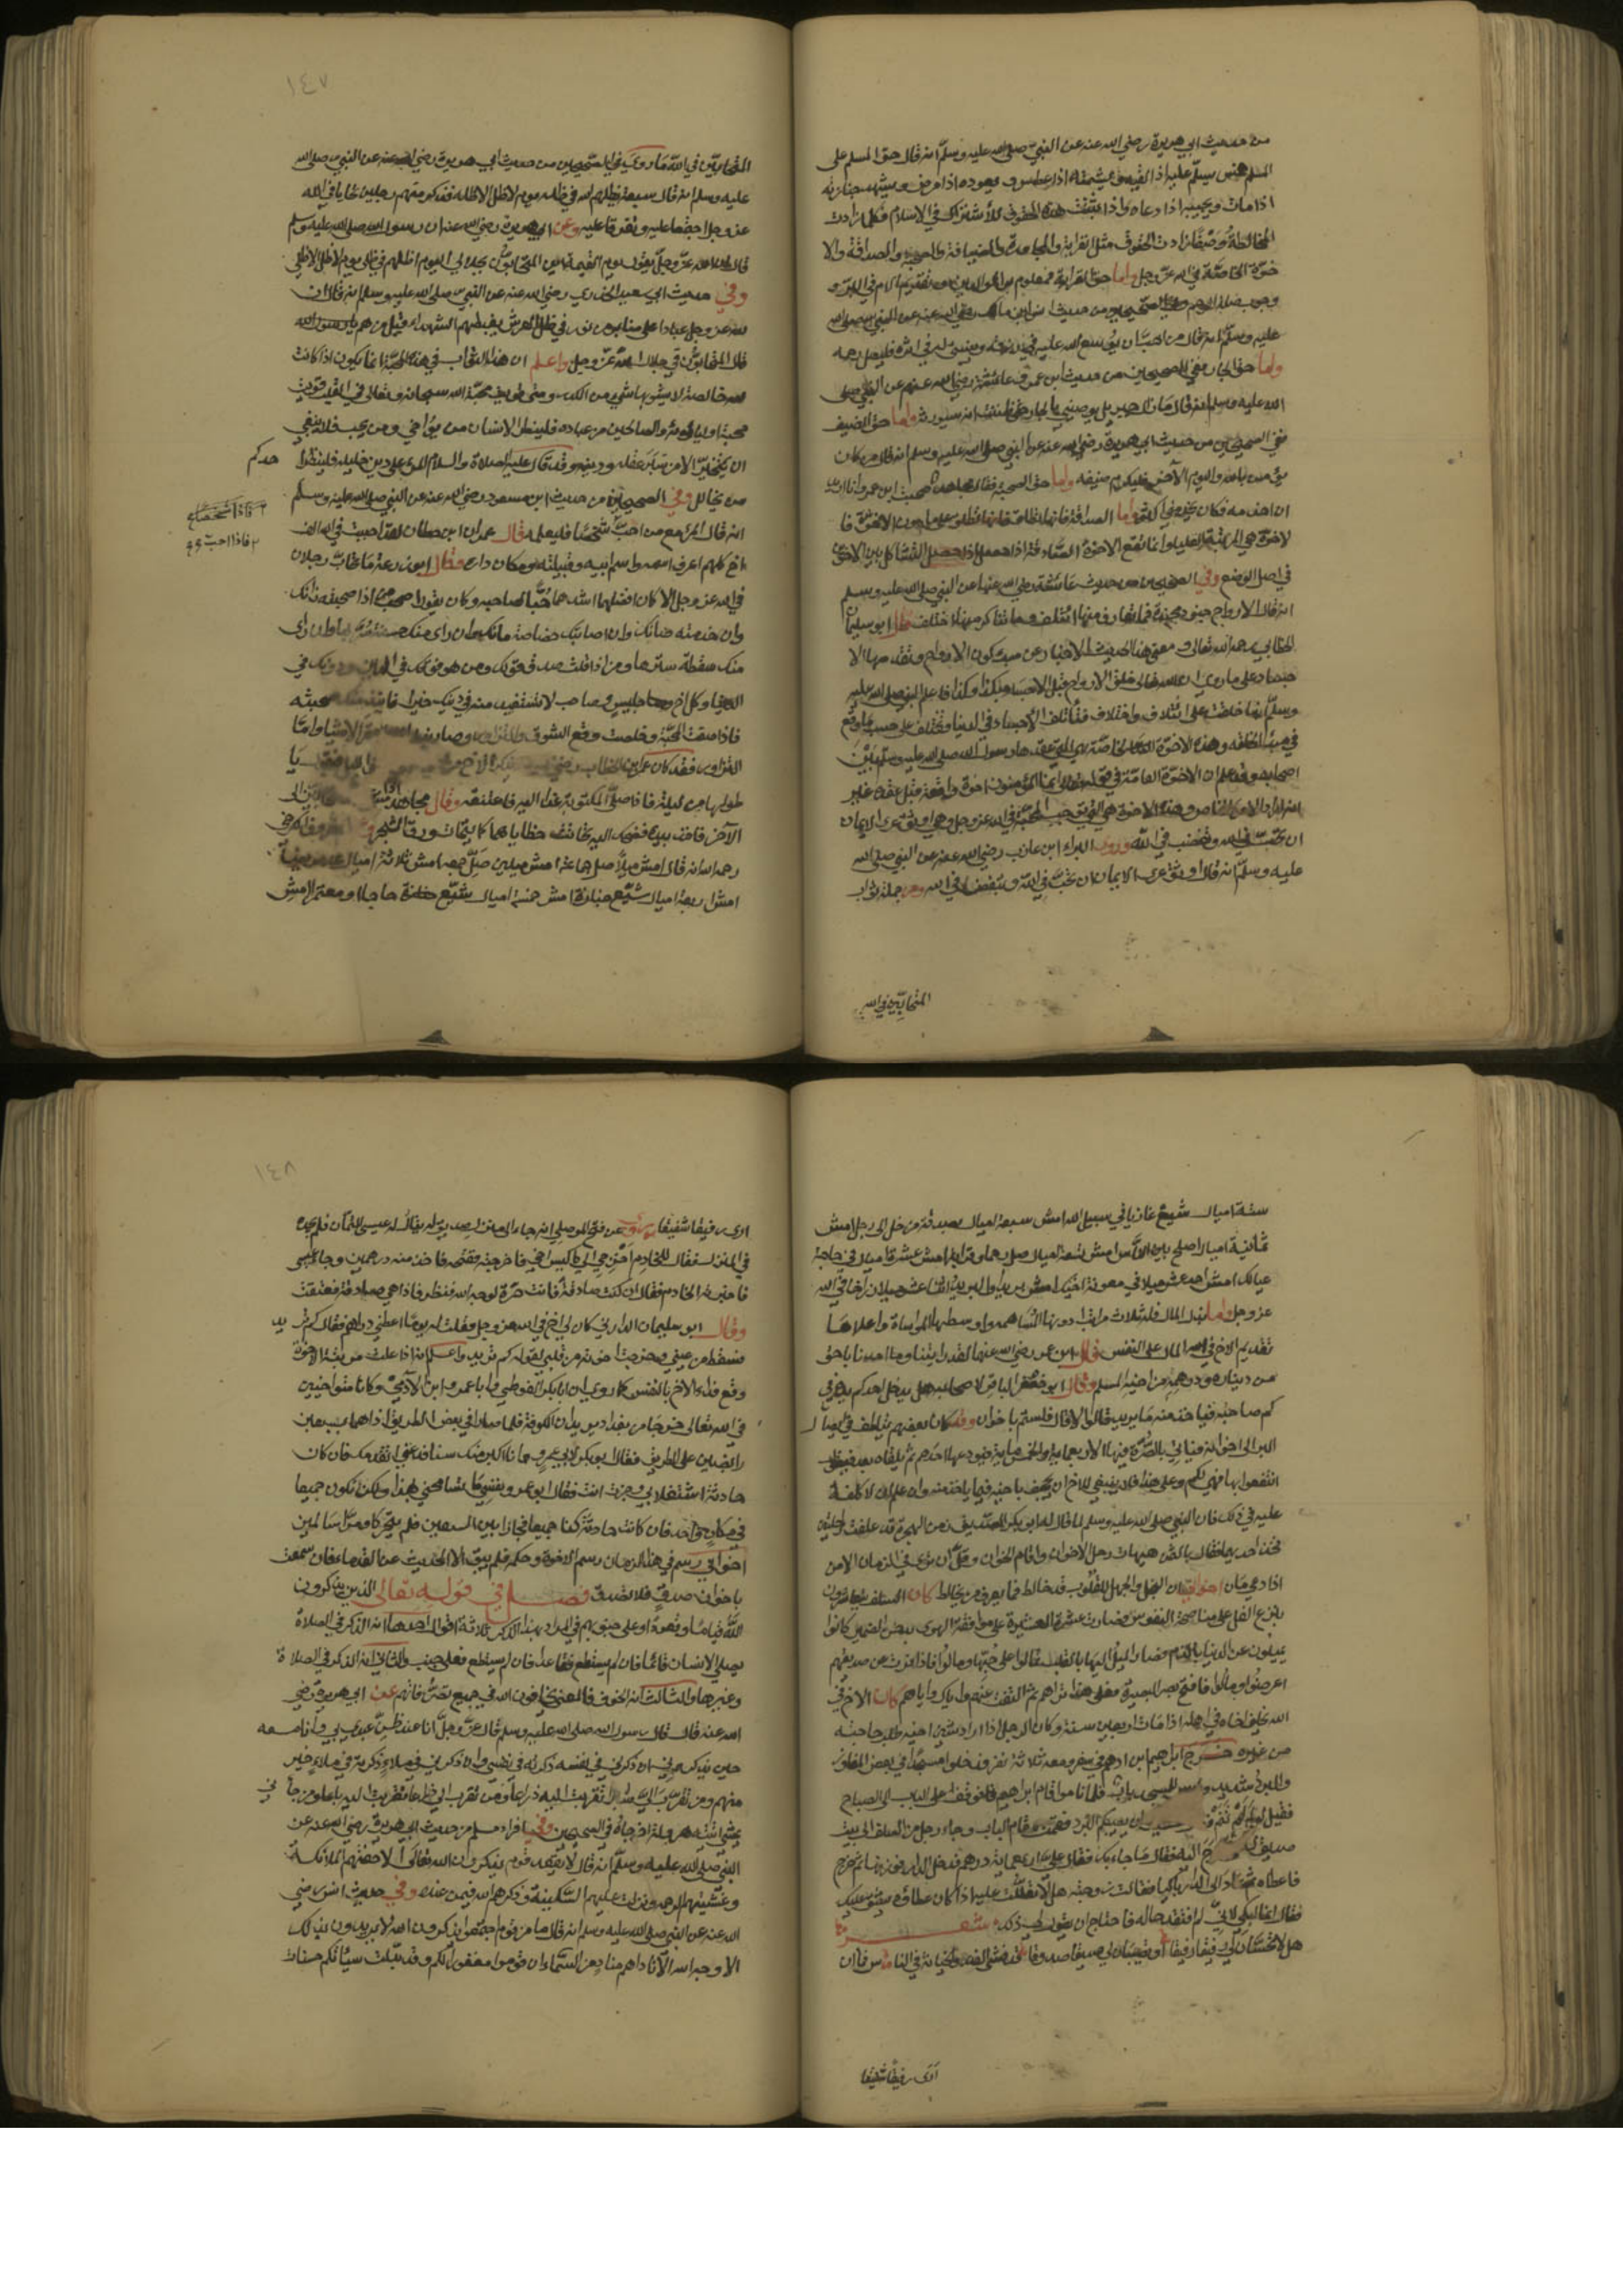 من حديث ابي هريرة رضي الله عنه عن النبي صلى الله عليه وسلم انه قال حق المسلم على
المسلم خمس يسلم عليه اذا لقيه ويشمته اذا عطس ويعوده اذا مرض ويشهد جنازته
اذا مات ويجيبه اذا دعاه واذا ثبتت هذه الحقوق للاشتراك في الاسلام فكلما زادت
المخالطة وصفا زادت الحقوق مثل القرابة والمجاورة والضيافة والصحبة والصداقة والا
خوة الخاصة في الله عز وجل واما حق القرابة فمعلوم بر الوالدين وتقديم الام في البر و
وجوب صلة الرحم وفي الصحيحين من حديث انس ابن مالك رضي الله عنه عن النبي صلى الله
عليه وسلم انه قال من احب ان يوسع الله عليه في رزقه وينسئ له في اثره فليصل رحمه
واما حق الجار ففي الصحيحين من حديث ابن عمر وعائشة رضي الله عنهم عن النبي صلى
الله عليه وسلم انه قال ما زال جبريل يوصيني بالجار حتى ظننت انه سيورثه واما حق الضيف
ففي الصحيحين من حديث ابي هريرة رضي الله عنه عن النبي صلى الله عليه وسلم انه قال من كان
يؤمن بالله واليوم الآخر فليكرم ضيفه واما حق الصحبة فقال مجاهد صحبت ابن عمر وانا اريد
ان اخدمه فكان يخدمني اكثر واما الصداقة فانها تطلق على ما دون الاخوة فا
لاخوة هي المرتبة العليا وانما تقع الاخوة الصادقة اذا حصل التشاكل بين الاخوين
في اصل الوضع وفي الصحيحين من حديث عائشة رضي الله عنها عن النبي صلى الله عليه وسلم
انه قال الارواح جنود مجندة فما تعارف منها ائتلف وما تناكر منها اختلف قال ابو سليمان
الخطابي رحمه الله تعالى ومعنى هذا الحديث الاخبار عن مبدء كون الارواح وتقدمها الا
جساد على ما روي ان الله تعالى خلق الارواح قبل الاجساد بكذا وكذا فاعلم النبي صلى الله عليه
وسلم انها خلقت على ائتلاف واختلاف فتأتلف الاجساد في الدنيا وتختلف على حسب ما وقع
في مبدء الخلقة وهذه الاخوة الخاصة هي التي عقدها رسول الله صلى الله عليه وسلم بين
اصحابه وقد علم ان الاخوة العامة في قوله تعالى انما المؤمنون اخوة واقعة قبل عقده غير
انه اراد الامر الخاص وهذه الاخوة هي التي توجب المحبة في الله عز وجل وهي اوثق عرى الايمان
ان تحب في الله وتبغض في الله وروى البراء ابن عازب رضي الله عنه عن النبي صلى الله
عليه وسلم انه قال اوثق عرى الايمان ان تحب في الله وتبغض في الله ومن جملة ثواب
المتحابين في الله
١٤٧
المتحابين في الله ما روي في الصحيحين من حديث ابي هريرة رضي الله عنه عن النبي صلى الله
عليه وسلم انه قال سبعة يظلهم الله في ظله يوم لا ظل الا ظله فذكر منهم رجلين تحابا في الله
عز وجل اجتمعا عليه وتفرقا عليه وعن ابي هريرة رضي الله عنه ان رسول الله صلى الله عليه وسلم
قال ان الله عز وجل يقول يوم القيمة اين المتحابون بجلالي اليوم اظلهم في ظلي يوم لا ظل الا ظلي
وفي حديث ابي سعيد الخدري رضي الله عنه عن النبي صلى الله عليه وسلم انه قال ان
لله عز وجل عبادا على منابر من نور في ظل العرش يغبطهم الشهداء قيل من هم يا رسول الله
قال المتحابون في جلال الله عز وجل واعلم ان هذا التحاب في هذه المحبة انما يكون اذا كانت
لله خالصة لا يشوبها شيء من الكدر ومتى قويت محبة الله سبحانه وتعالى في القلب قويت
محبة اوليائه والصالحين من عباده فلينظر الانسان من يواخي ومن يحب فلا ينبغي
ان يتخير الا من سبر عقله ودينه وقد قال عليه الصلاة والسلام المرء على دين خليله فلينظر احدكم
من يخالل وفي الصحيحين من حديث ابن مسعود رضي الله عنه عن النبي صلى الله عليه وسلم
انه قال المرء مع من احب فاذا احب شخصا فليعلمه قال عمران ابن حطان لقد احببت في الله الف
اخ كلهم اعرف اسمه واسم ابيه وقبيلته ومكان داره فقال ابو زرعة ما تحاب رجلان
في الله عز وجل الا كان افضلهما اشدهما حبا لصاحبه وكان يقول اصحب من اذا صحبته زانك
وان خدمته صانك وان اصابتك خصاصة مانك وان راى منك حسنة سر بها وان راى
منك سقطة سترها ومن اذا قلت صدق قولك ومن هو فوقك في الدين ودونك في
الدنيا وكل اخ وجليس وصاحب لا تستفيد منه في دينك خيرا فانبذ عنك صحبته
فاذا صفت المحبة وخلصت وقع الشوق والتزاور وصار بذل المال احقر الاشياء واما
التزاور فقد كان عمر ابن الخطاب رضي الله عنه يذكر الاخ من اخوانه في الليل فيقول يا
طولها من ليلة فاذا صلى المكتوبة غدا اليه فاعتنقه وقال مجاهد اذا مشى احد المتحابين الى
الآخر فاخذ بيده فضحك اليه تحاتت خطاياهما كما يتحات ورق الشجر
رحمه الله انه قال امش ميلا صل جماعة امش ميلين صل جمعة امش ثلاثة اميال عد مريضا
امش اربعة اميال شيع جنازة امش خمسة اميال شيع حاجا او معتمرا امش
ستة اميال شيع غازيا في سبيل الله امش سبعة اميال بصدقة من رجل الى رجل امش
ثمانية اميال اصلح بين الناس امش تسعة اميال صل رحما وقرابة امش عشرة اميال في حاجة
عيالك امش احد عشر ميلا في معونة اخيك امش بريدا والبريد اثنا عشر ميلا زر اخا في الله
عز وجل واما بذل المال فله ثلاث مراتب ادونها المساهمة واوسطها المواساة واعلاها
تقديم الاخ في المال على النفس قال ابن عمر رضي الله عنهما لقد رايتنا وما احدنا باحق
من ديناره ودرهمه من اخيه المسلم وقال ابو جعفر الباقر لاصحابه هل يدخل احدكم يده في
كم صاحبه فياخذ منه ما يريد قالوا لا قال فلستم باخوان وقد كان بعضهم يتلطف في ايصال
البر الى اخوانه فيأتي بالصرة فيها الاربعمائة والخمسمائة فيودعها احدهم ثم يلقاه بعد فيقول
انتفعوا بها فهي لكم وعلى هذا فلا ينبغي للاخ ان يجحف باخيه فيما ياخذ منه وان علم انه لا كلفة
عليه في ذلك فان النبي صلى الله عليه وسلم لما قال له ابو بكر الصديق زمن الهجرة قد علفت راحلتين
فخذ احديهما فقال بالثمن هيهات رحل الاخوان واقام الخوان وقل ان ترى في الزمان الا من
اذا دعي مان اخواني ان البخل والجهل للقلوب قد خالط فما يعرف من يخالط كان السلف يتعاشرون
يميلون عن الدنيا
اعرضوا ومالوا
الله يخلف اخاه في اهله اذا مات اربعين سنة وكان الرجل اذا اراد شين اخيه طلب حاجته
من غيره خرج ابراهيم ابن ادهم في سفر ومعه ثلاثة نفر فدخلوا مسجدا في بعض المفاوز
والبرد شديد وليس للمسجد باب فلما ناموا قام ابراهيم فوقف على الباب الى الصباح
فقيل له لم لم تنم فقال خشيت ان يصيبكم البرد فقمت مقام الباب وجاء رجل من السلف الى بيت
صديق له فخرج اليه فقال ما جاء بك فقال علي اربعمائة درهم فدخل الدار فوزنها ثم خرج
فاعطاه ثم عاد الى الدار باكيا فقالت زوجته هلا تعللت عليه اذا كان عطاؤه يشق عليك
فقال انما ابكي لاني لم افتقد حاله فاحتاج ان يقول لي ذلك شعر
هل لا تحسبان لي رفيقا رفيقا او تصيبان لي صديقا صدوقا قد فشى الغدر والخيانة في الناس فما ان
ارى رفيقا شفيقا
١٤٨
ارى رفيقا شفيقا وروي عن فتح الموصلي انه جاء الى منزل صديق له يقال له عيسى التمار فلم يجده
في المنزل فقال للخادم اخرجي الي كيس اخي فاخرجته ففتحه فاخذ منه درهمين وجاء عيسى
فاخبرته الخادم فقال ان كنت صادقة فانت حرة لوجه الله فنظر فاذا هي صادقة فعتقت
وقال ابو سليمان الداراني كان لي اخ في الله عز وجل فقلت له يوما اعطني دراهم فقال كم تريد
فسقط من عيني وخرجت اخوته من قلبي لقوله كم تريد واعلم انه اذا علت مرتبة الاخوة
وقع فداء الاخ بالنفس كما روي ان ابا بكر الفوطي وابا عمرو ابن الآدمي وكانا متواخيين
في الله تعالى خرجا من بغداد يريدان الكوفة فلما صارا في بعض الطريق اذا هما بسبعين
رابضين على الطريق فقال ابو بكر لابي عمرو انا اكبر منك سنا فدعني اتقدمك فان كان
حادثة اشتغلا بي وجزت انت فقال ابو عمرو نفسي ما تسامحني بهذا ولكن نكون جميعا
في مكان واحد فان كانت حادثة كنا جميعا فجازا بين السبعين فلم يتحركا ومرا سالمين
اخواني رسم في هذا الزمان رسم الاخوة وحكمه فلم يبق الا الحديث عن القدماء فان سمعت
باخوان صدق فلا تصدق فصل في قوله تعالى الذين يذكرون
الله قياما وقعودا وعلى جنوبهم في المراد بهذا الذكر ثلاثة اقوال احدها انه الذكر في الصلاة
يصلي الانسان قائما فان لم يستطع فقاعدا فان لم يستطع فعلى جنب والثاني انه الذكر في الصلاة
وغيرها والثالث انه الخوف فالمعنى يخافون الله في جميع تصرفاتهم عن ابي هريرة رضي
الله عنه قال قال رسول الله صلى الله عليه وسلم قال عز وجل انا عند ظن عبدي بي وانا معه
حين يذكرني ان ذكرني في نفسه ذكرته في نفسي وان ذكرني في ملاء ذكرته في ملاء خير
منهم ومن تقرب الي شبرا تقربت اليه ذراعا ومن تقرب الي ذراعا تقربت اليه باعا ومن جاءني
يمشي اتيته هرولة اخرجاه في الصحيحين وفي افراد مسلم من حديث ابي هريرة رضي الله عنه عن
النبي صلى الله عليه وسلم انه قال لا يقعد قوم يذكرون الله تعالى الا حفتهم الملائكة
وغشيتهم الرحمة ونزلت عليهم السكينة وذكرهم الله فيمن عنده وفي حديث انس رضي
الله عنه عن النبي صلى الله عليه وسلم انه قال ما من قوم اجتمعوا يذكرون الله لا يريدون بذلك
الا وجه الله الا ناداهم مناد من السماء ان قوموا مغفورا لكم وقد بدلت سيئاتكم حسنات